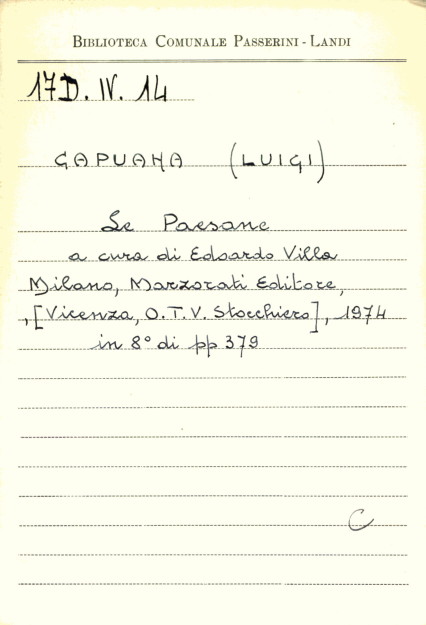 BIBLIOTECA COMUNALE PASSERINI - LANDI
17D. IV. 14
CAPUANA (LUIGI)
Le Paesane
a cura di Edoardo Villa
Milano, Marzorati Editore,
, [Vicenza, O. T. V. Stocchiero], 1974
in 8° di pp 379
C